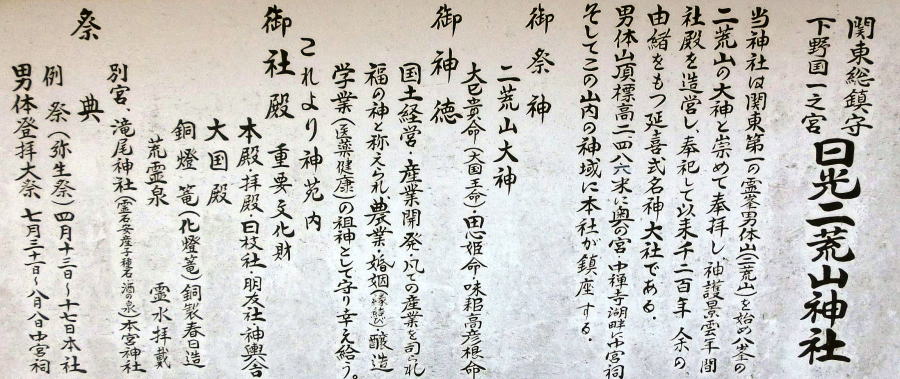 関東総鎮守
下野国一之宮
日光二荒山神社
当神社は関東第一の霊峯男体山(二荒山)を始め八峯の
二荒山の大神と崇めて奉拝し、神護景雲年間
社殿を造営し、奉祀して以来千二百年余の
由緒をもつ延喜式名神大社である.
男体山頂標高二、四八六米に奥の宮・中禅寺湖畔に中宮祠
そしてこの山内の神域に本社が鎮座する.
御祭神
二荒山大神
大己貴命(大国主命)・田心姫命・味耜高彦根命
御神徳
国土経営・産業開発・凡ての産業を司られ
福の神と称えられ農業・婚姻(縁結び)醸造
学業(医薬健康)の祖神として守り幸え給う。
御社殿 重要文化財
本殿・拝殿・日枝社・朋友社・神輿舎
これより神苑内
大国殿
銅燈篭(化燈篭)銅製春日造
荒霊泉 霊水拝戴
別宮、滝尾神社(霊石安産子種石 酒の泉)本宮神社
祭典
例祭(弥生祭)四月十三日〜十七日本社
男体登拝大祭 七月三十一日〜八月八日中宮祠